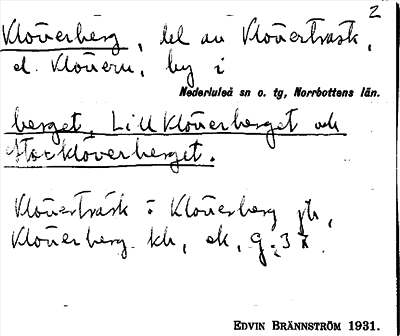 2
Klöverberg, del av Klöverträsk,
el. Klövern, by i
Nederluleå sn o. tg, Norrbottens län.
berget, Lill Klöverberget och
Stor klöverberget.
Klöverträsk : Klöverberg jb,
Klöverberg kb, ek, g. 3 x.
EDVIN BRÄNNSTRÖM 1931.